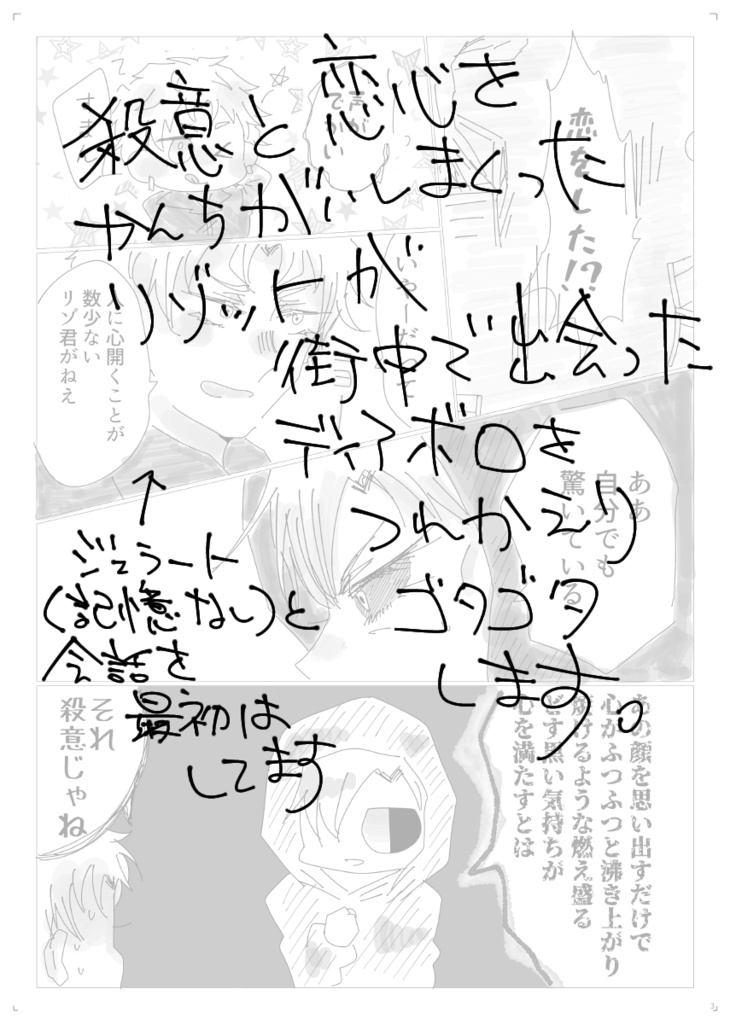 殺意と恋心を
かんちがいしまくった
リゾットが
街中で出会った
ディアボロを
つれかえり
ゴタゴタ
します。
↑
ジェラート
(記憶なし)と
会話を
最初は
してます
恋をした!?
声が
でかい
いやーだって
人に心開くことが
数少ない
リゾ君がねえ
ああ
自分でも
驚いている
あの顔を思い出すだけで
心がふつふつと沸き上がり
焼けるような燃え盛る
どす黒い気持ちが
心を満たすとは
それ
殺意じゃね
3